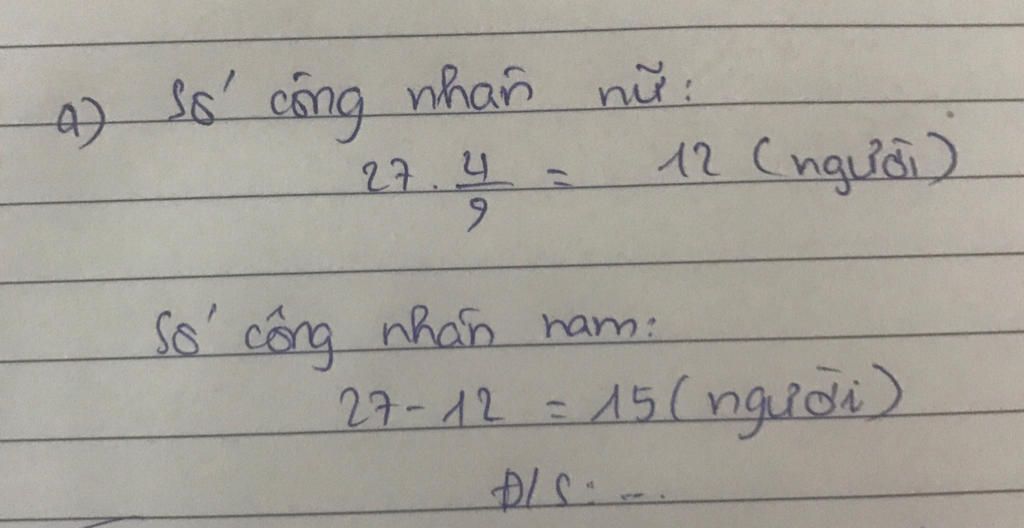 a) Số công nhân nữ:
27 . 4/9 = 12 (người)
Số công nhân nam:
27 - 12 = 15 (người)
Đ/S: ...